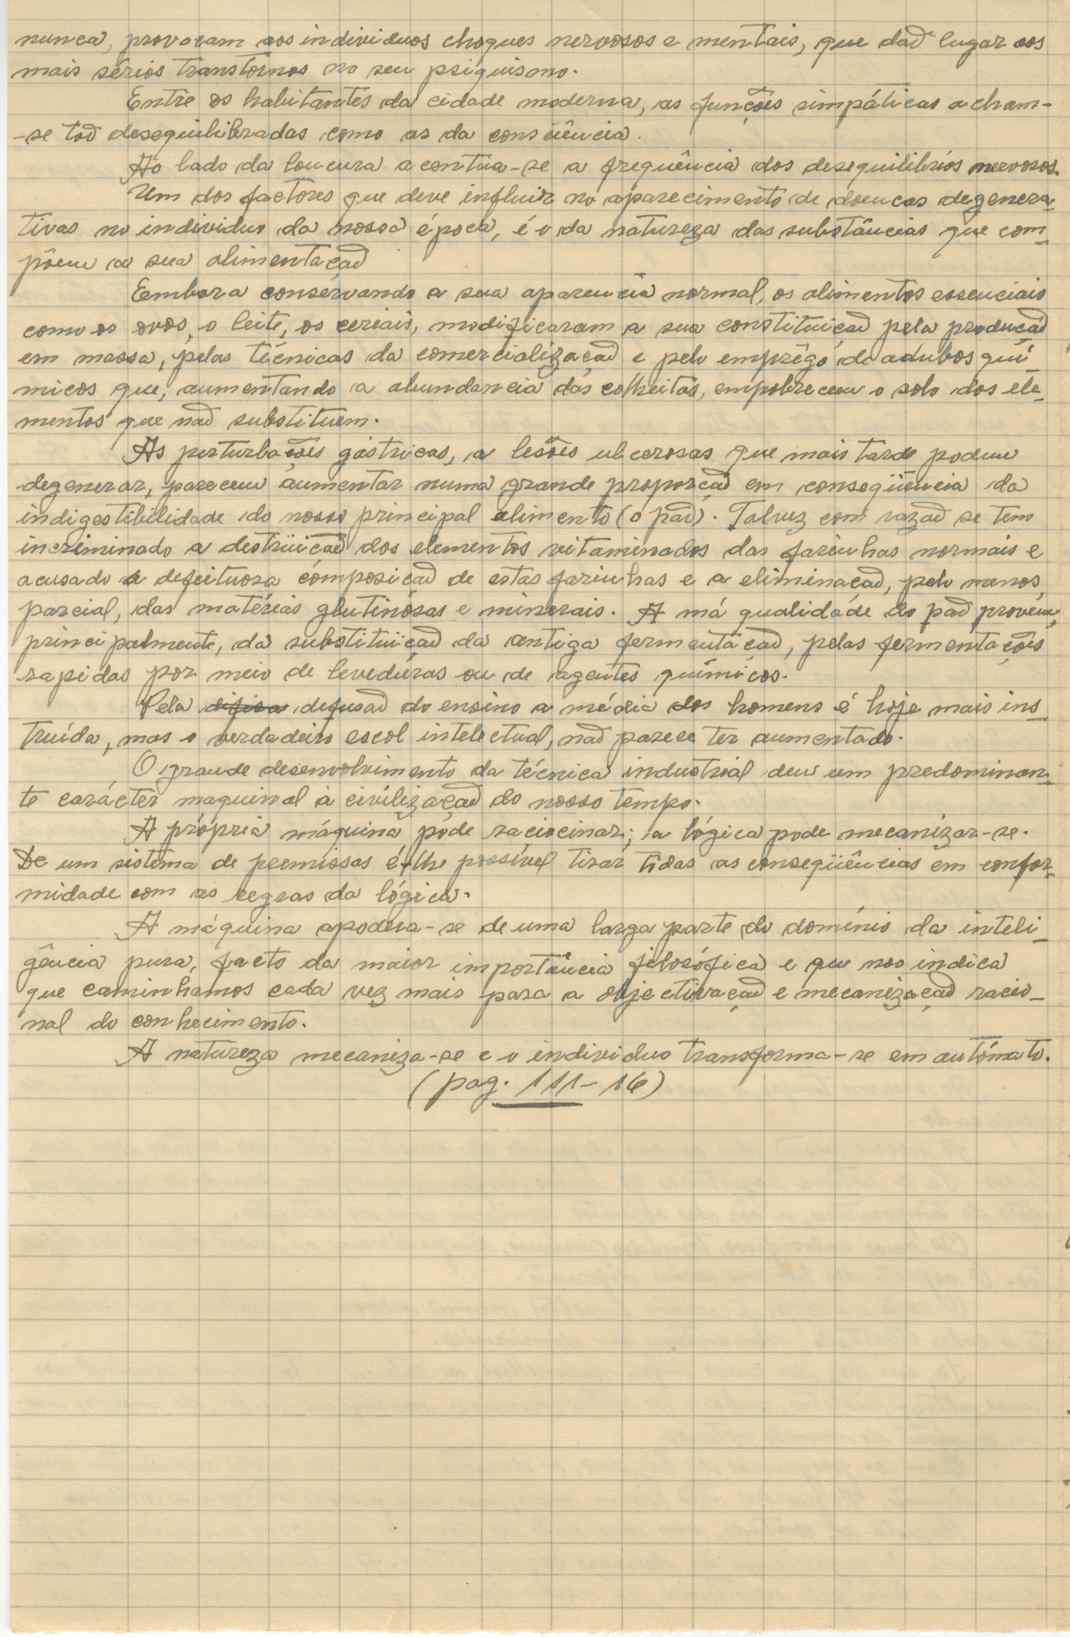 nunca, provocam aos individuos choques nervosos e mentais, que dão lugar aos
mais sérios transtornos no seu psiquismo.
Entre os habitantes da cidade moderna, as funções simpáticas acham-
-se tão desequilibradas como as da consciência.
Ao lado da loucura acentua-se a frequência dos desequilibrios nervosos.
Um dos factores que deve influir no aparecimento de doenças degenera-
tivas no individuo da nossa época, é o da natureza das substâncias que com-
põem a sua alimentação
Embora conservando a sua aparencia normal, os alimentos essenciais
como os ovos, o leite, os cereais, modificaram a sua constituição pela produção
em massa, pelas técnicas da comercialização e pelo emprêgo de adubos quí-
micos que, aumentando a abundancia das colheitas, empobrecem o solo dos ele-
mentos que não substituem.
As perturbações gástricas, a lesões ulcerosas que mais tarde podem
degenerar, parecem aumentar numa grande proporção em conseqüência da
indigestibilidade do nosso principal alimento (o pão). Talvez com razão se tem
incriminado a destrüição dos elementos vitaminados das farinhas normais e
acusado a defeituosa composição de estas farinhas e a eliminação, pelo menos
parcial, das matérias glutinósas e minerais. A má qualidade do pão provém,
principalmente, da substitüição da antiga fermentação, pelas fermentações
rapidas por meio de levedúras ou de agentes químicos.
Pela difisa difusão do ensino a média dos homens é hoje mais ins-
truída, mas o verdadeiro escol intelectual, não parece ter aumentado.
O grande desenvolvimento da técnica industrial deu um predominan-
te carácter maquinal à civilização do nosso tempo.
A própria máquina póde raciocinar; a lógica pode mecanizar-se.
De um sistema de premissas é-lhe possível tirar tôdas as conseqüências em confor-
midade com as regras da lógica.
A máquina apodera-se de uma larga parte do domínio da inteli-
gência pura, facto da maior importância filosófica e que nos indica
que caminhamos cada vez mais para a objectivação e mecanização racio-
nal do conhecimento.
A natureza mecaniza-se e o individuo transforma-se em autómato.
(pag. 111-16)